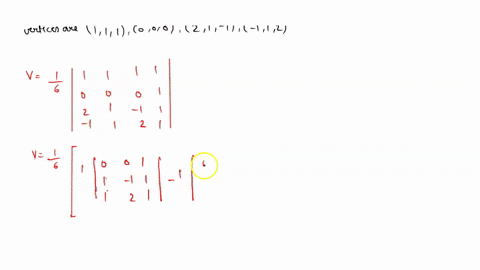 vertices are (1,1,1),(0,0,0),(2,1,-1),(-1,1,2)
V= 1/6 | 1 1 1 1
0 0 0 1
2 1 -1 1
-1 1 2 1 |
V= 1/6 [ 1 | 0 0 1
1 -1 1
1 2 1 | -1 |